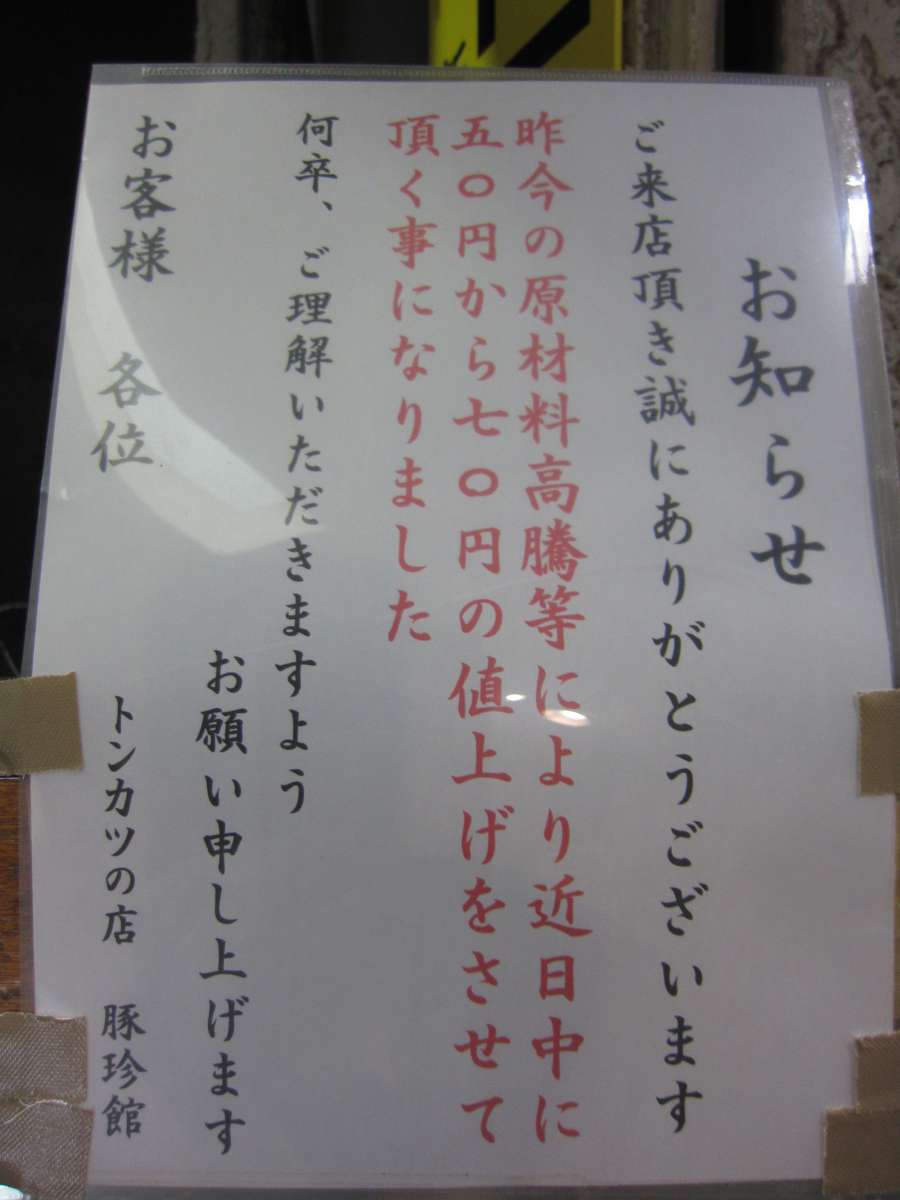 お知らせ
ご来店頂き誠にありがとうございます
昨今の原材料高騰等により近日中に
五〇円から七〇円の値上げをさせて
頂く事になりました
何卒、ご理解いただきますよう
お願い申し上げます
お客様 各位
トンカツの店 豚珍館